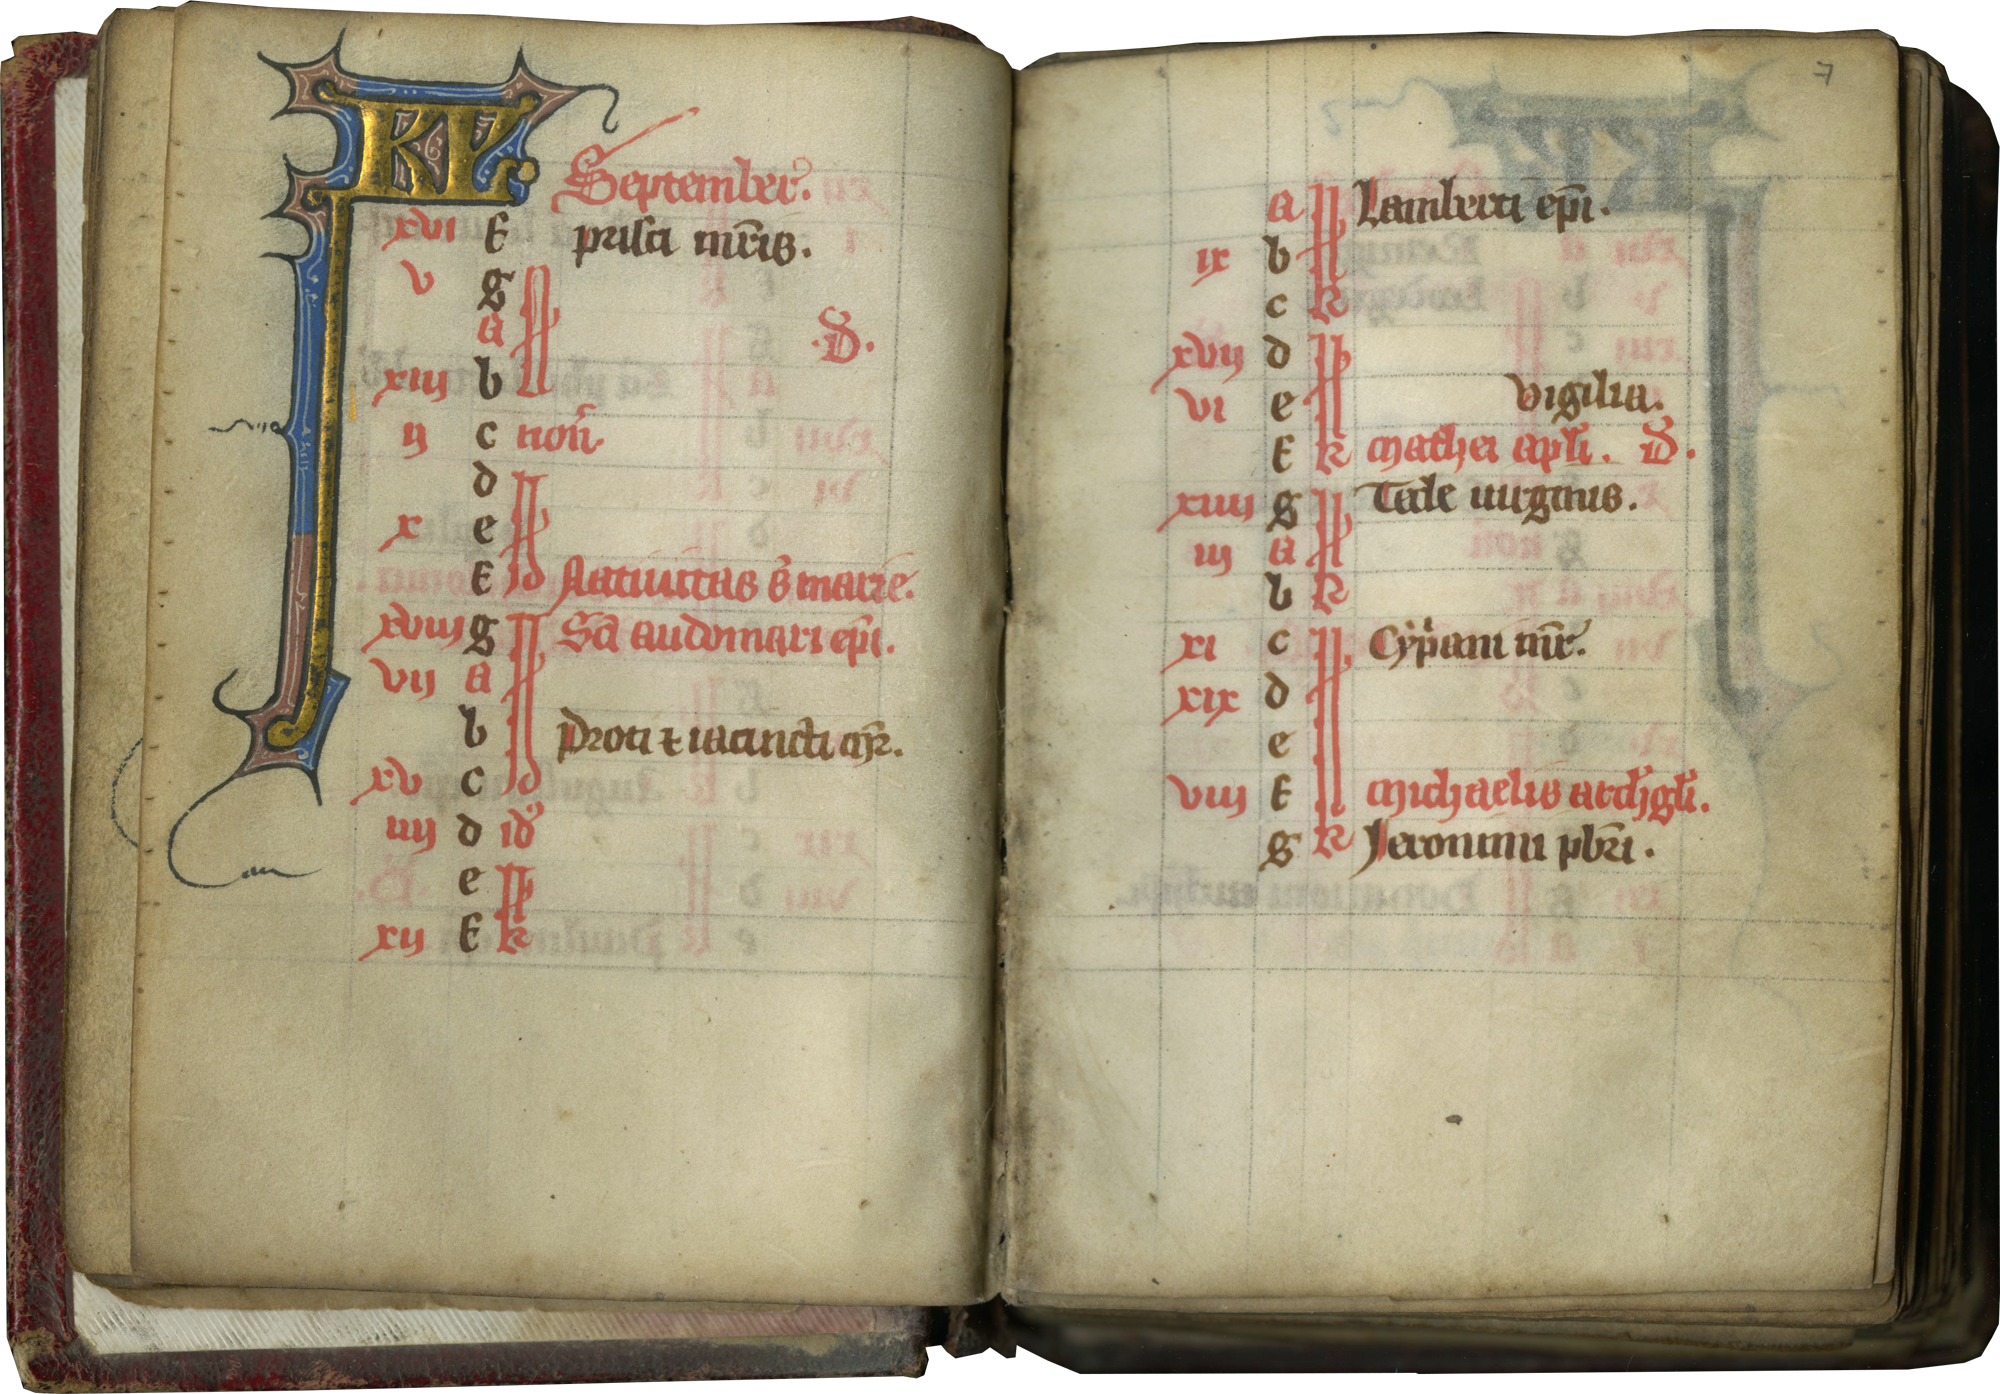 KL
September.
xvi f prisci mr̄is.
v g
a .D.
xiii b
ii c non̄
d
x e
f Id Natiuitas b̄ marie.
xviii g Sc̄i audomari ep̄i.
vii a
b Proti ⁊ iacincti m̄r.
xv c Id
iiii d id9
e
xii f k
7
a Lamberti ep̄i.
ix b
c k
xvii d
vi e vigilia.
f k mathei apl̄i. D.
xiiii g Tecle uirginis.
iii a
b k
xi c Cyp̄ani m̄r.
xix d
e
viii f michaelis archāgl̄i.
g k Jeronimi pb̄ri.